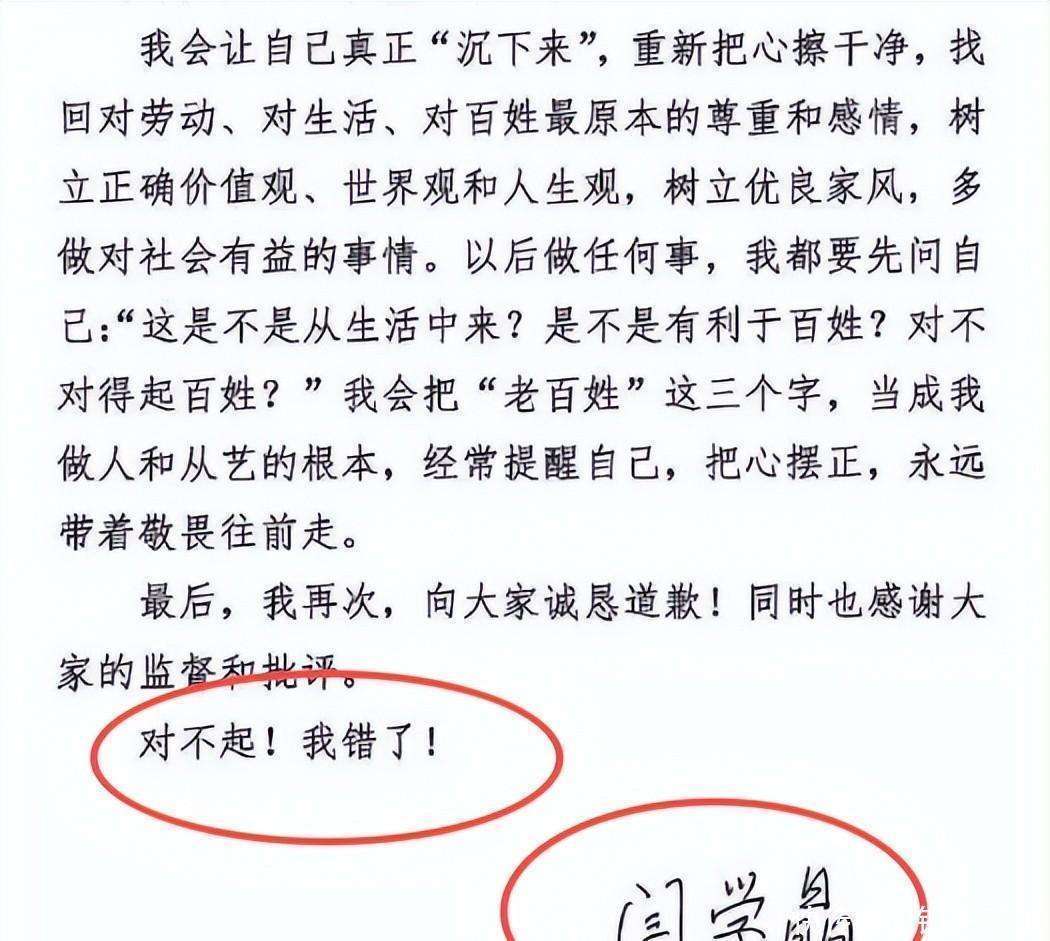 我会让自己真正“沉下来”，重新把心擦干净，找
回对劳动、对生活、对百姓最原本的尊重和感情，树
立正确价值观、世界观和人生观，树立优良家风，多
做对社会有益的事情。以后做任何事，我都要先问自
己：“这是不是从生活中来？是不是有利于百姓？对不
对得起百姓？”我会把“老百姓”这三个字，当成我
做人和从艺的根本，经常提醒自己，把心摆正，永远
带着敬畏往前走。
最后，我再次，向大家诚恳道歉！同时也感谢大
家的监督和批评。
对不起！我错了！
闫学晶